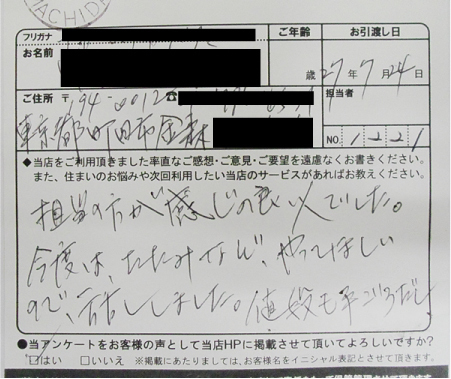 MACHIDA
フリガナ
お名前
ご年齢
お引渡し日
歳
27年7月24日
ご住所 〒194-0012 ☎
担当者
東京都町田市金森
NO. 1221
◆当店をご利用頂きました率直なご感想・ご意見・ご要望を遠慮なくお書きください。
また、住まいのお悩みや次回利用したい当店のサービスがあればお教えください。
担当の方が感じの良い人でした。
今度は、たたみなど、やってほしい
ので、話ししました。値段も手ごろだし
●当アンケートをお客様の声として当店HPに掲載させて頂いてよろしいですか?
☑はい □いいえ ※掲載にあたりましては、お客様名をイニシャル表記とさせて頂きます。